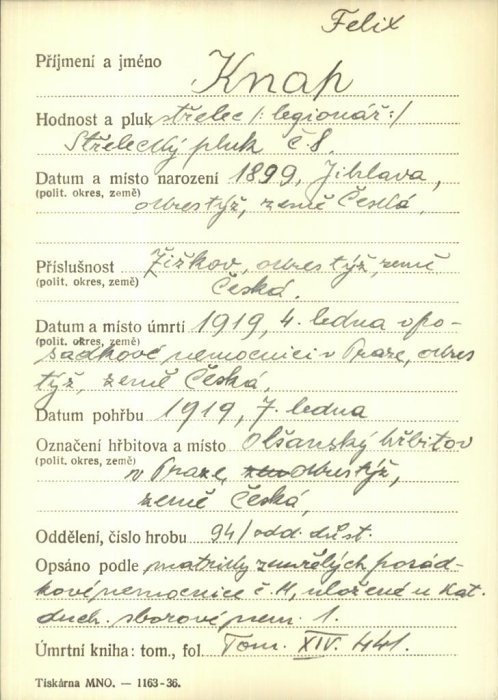 Felix
Příjmení a jméno Knap
Hodnost a pluk střelec /: legionář :/
Střelecký pluk č 8.
Datum a místo narození 1899, Jihlava,
(polit. okres, země) okres týž, země Česká,
Příslušnost Žižkov, okres týž, země
(polit. okres, země) Česká.
Datum a místo úmrtí 1919, 4. ledna v po-
(polit. okres, země)
sádkové nemocnici v Praze, okres
týž, země Česká,
Datum pohřbu 1919, 7. ledna
Označení hřbitova a místo Olšanský hřbitov
(polit. okres, země) v Praze, okres týž,
země Česká,
Oddělení, číslo hrobu 94/odd. důst.
Opsáno podle matriky zemřelých posád-
kové nemocnice č. 11, uložené u Kat.
duch. sborové nem. 1.
Úmrtní kniha: tom., fol. Tom. XIV. 441.
Tiskárna MNO. — 1163-36.